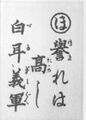 ほ
譽れは
高し
白耳義軍